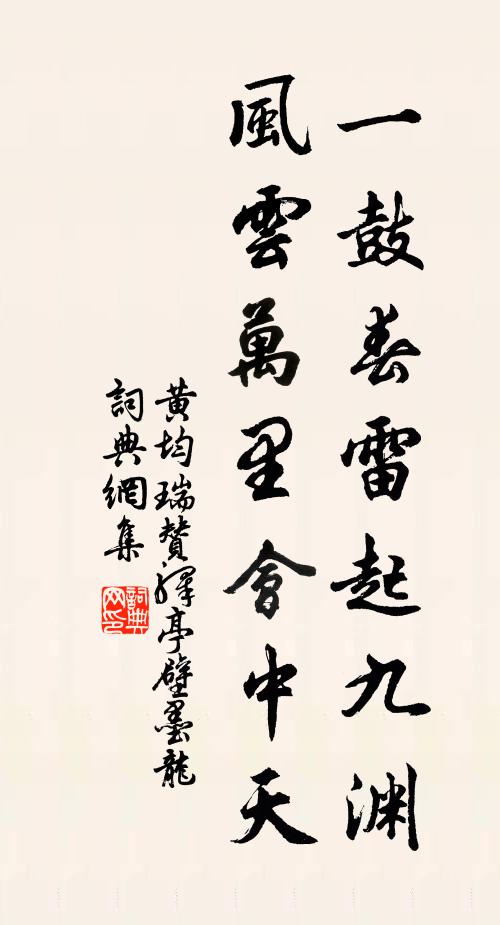 一鼓春雷起九渊
風雲萬里會中天
黄均瑞贊驛亭壁墨龍
詞典網集
詞典网印